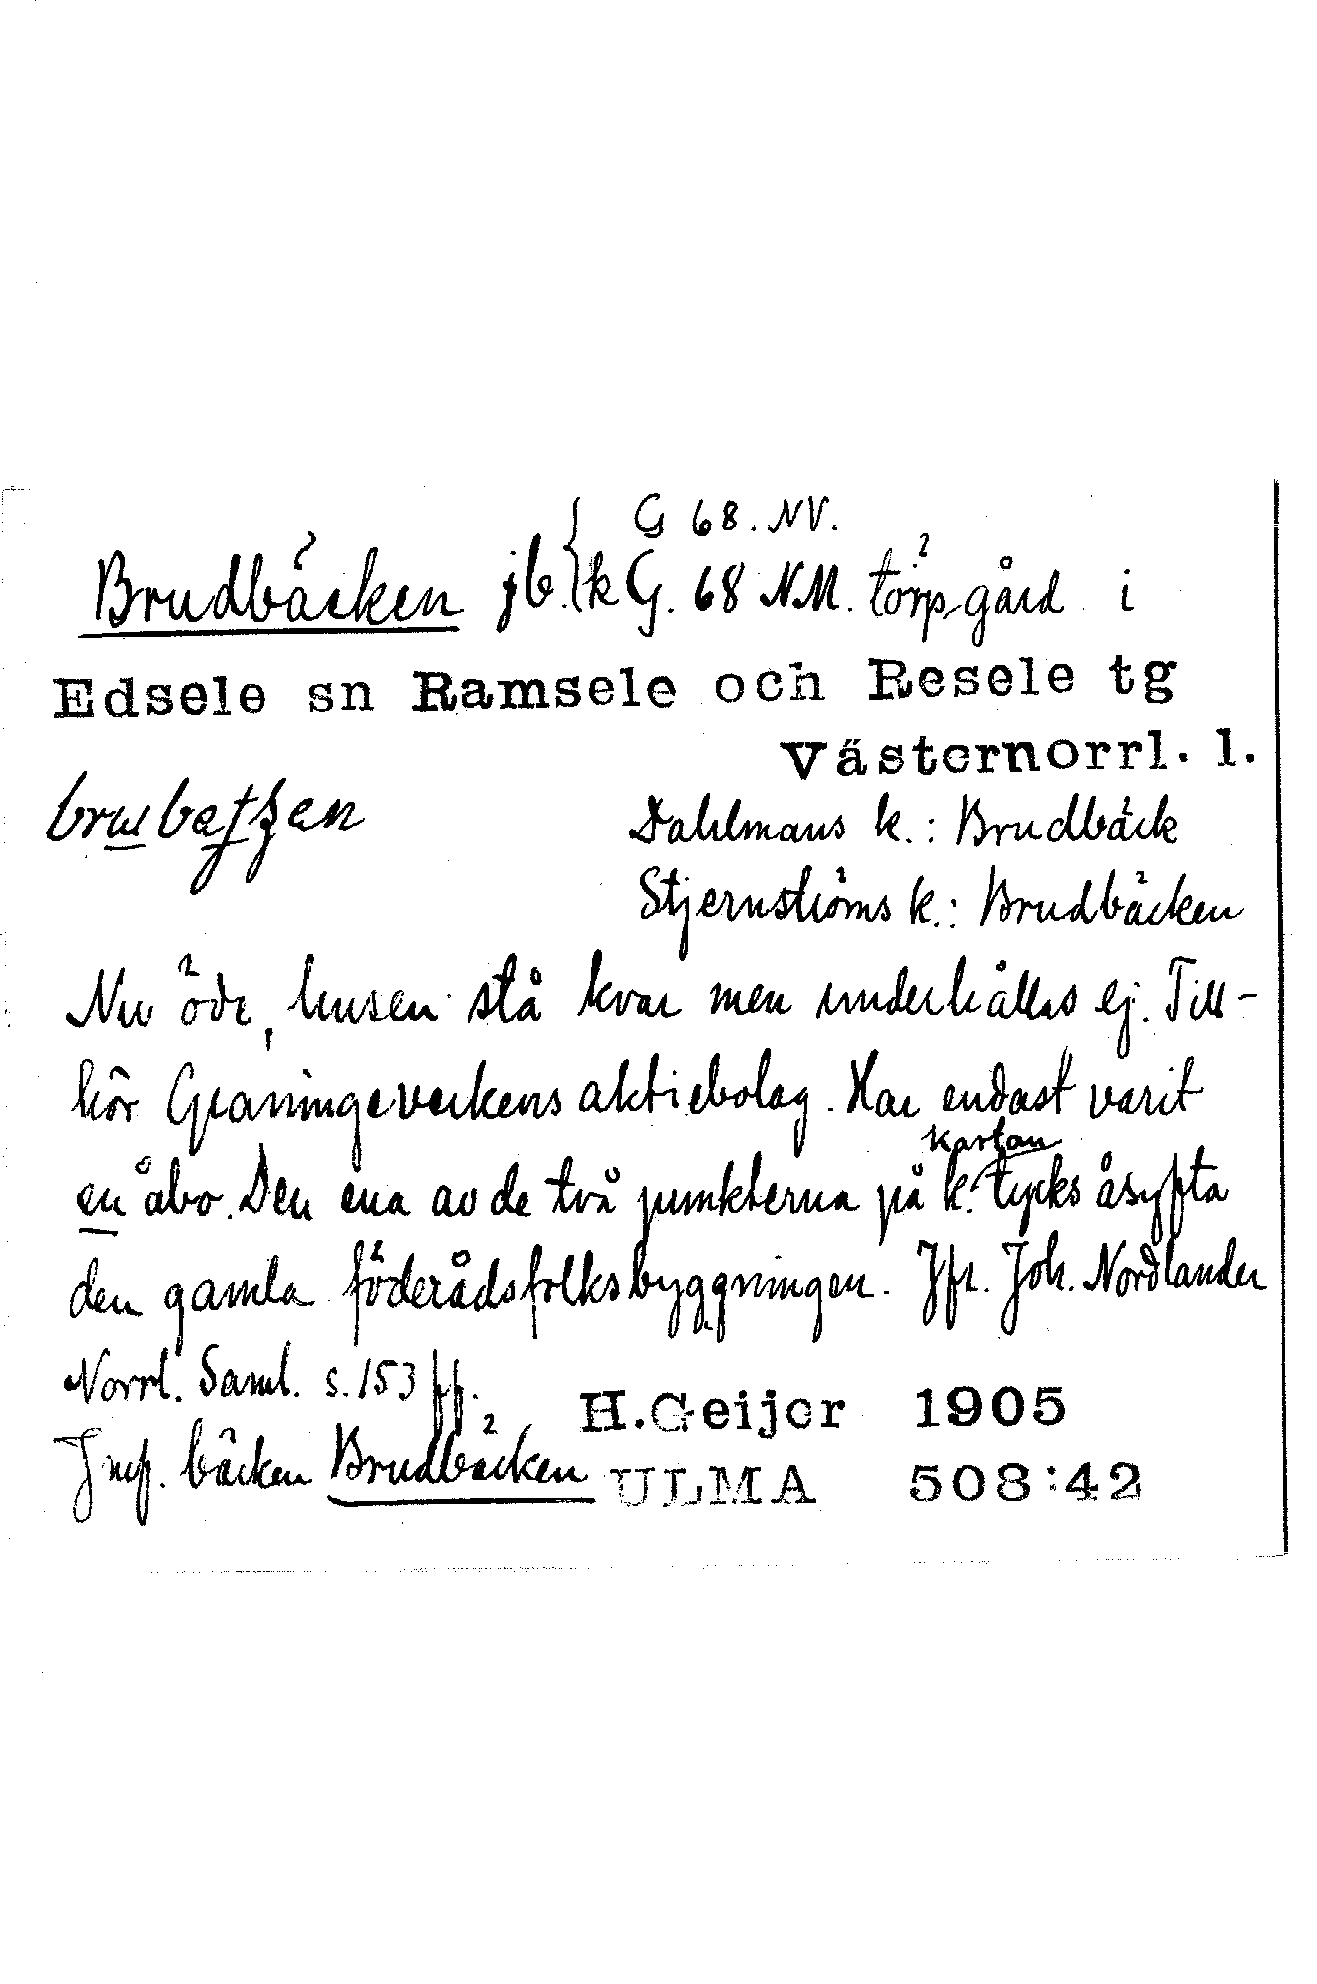 G 68. NV.
Brudbäcken jb. { k G. 68 NM. torp, gård i
Edsele sn Ramsele och Resele tg
Västernorrl. l.
Dahlmans k.: Brudbäck
Stjernströms k.: Brudbäcken
Nu öde, husen stå kvar men underhålles ej. Till-
hör Graningeverkens aktiebolag. Har endast varit
kartan
en åbo. Den ena av de två punkterna på k. tycks åsyfta
den gamla föderådsfolksbyggningen. Jfr. Joh. Nordlander
Norrl. Saml. s. 153 ff.
H. Geijer 1905
Jmf. bäcken Brudbäcken
ULMA 508:42